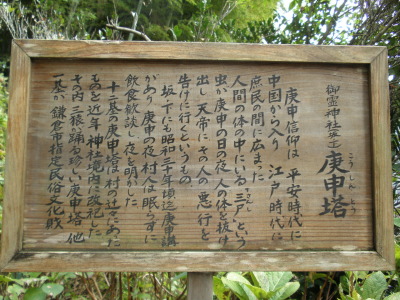 御霊神社考
庚申塔
こうしんとう
庚申信仰は 平安時代に
中国から入り 江戸時代に
庶民の間に広まった
人間の体の中にいる三尸という
虫が庚申の日の夜 人の体を抜け
出し 天帝にその人の悪行を
告げに行くというもの。
坂ノ下にも昭和三十年頃迄庚申講
があり 庚申の夜 村人は眠らずに
飲食歓談し 夜を明かした
十一基の庚申塔は村の辻々にあった
ものを近年 神社境内に改祀した
その内 三猿が踊る珍しい庚申塔 他
一基が 鎌倉市指定民俗文化財